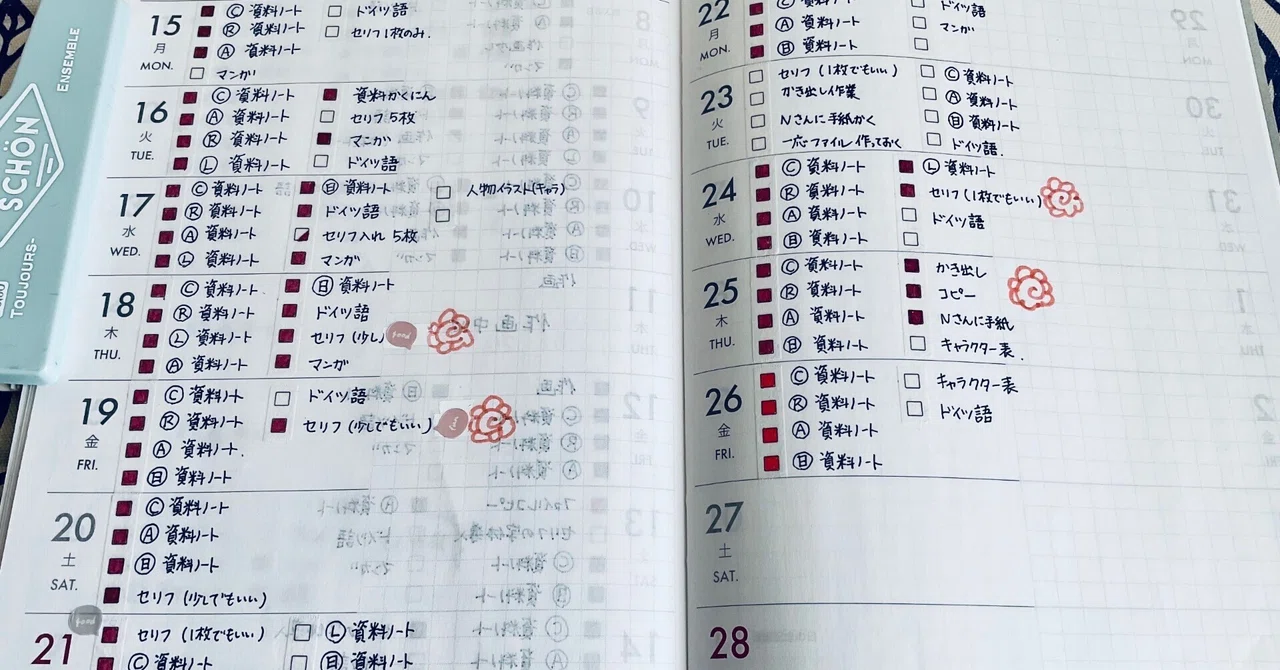 ENSEMBLE
SCHÖN
TOUJOURS-
15
月
MON.
Ⓒ 資料ノート
Ⓡ 資料ノート
Ⓐ 資料ノート
マンガ
ドイツ語
セリフ1枚のみ.
16
火
TUE.
Ⓒ 資料ノート
Ⓐ 資料ノート
Ⓡ 資料ノート
Ⓛ 資料ノート
資料かくにん
セリフ5枚
マンガ
ドイツ語
17
水
WED.
Ⓒ 資料ノート
Ⓡ 資料ノート
Ⓐ 資料ノート
Ⓛ 資料ノート
Ⓗ 資料ノート
ドイツ語
セリフ入れ 5枚
マンガ
人物イラスト(キャラ)
18
木
THU.
Ⓒ 資料ノート
Ⓡ 資料ノート
Ⓛ 資料ノート
Ⓐ 資料ノート
㊐ 資料ノート
ドイツ語
セリフ (少し)
マンガ
19
金
FRI.
Ⓒ 資料ノート
Ⓡ 資料ノート
Ⓐ 資料ノート.
㊐ 資料ノート
ドイツ語
セリフ (少しでもいい)
20
土
SAT.
Ⓒ 資料ノート
Ⓐ 資料ノート
㊐ 資料ノート
セリフ (少しでもいい)
21
セリフ (1枚でもいい)
Ⓒ 資料ノート
Ⓛ 資料ノート
㊐ 資料ノート
22
月
MON.
Ⓒ 資料ノート
Ⓐ 資料ノート
㊐ 資料ノート
ドイツ語
マンガ
23
火
TUE.
セリフ (1枚でもいい)
かき出し作業
Nさんに手紙かく
一応ファイル作っておく
Ⓒ 資料ノート
Ⓐ 資料ノート
㊐ 資料ノート
ドイツ語.
24
水
WED.
Ⓒ 資料ノート
Ⓡ 資料ノート
Ⓐ 資料ノート
㊐ 資料ノート
Ⓛ 資料ノート
セリフ (1枚でもいい)
ドイツ語
25
木
THU.
Ⓒ 資料ノート
Ⓡ 資料ノート
Ⓐ 資料ノート
㊐ 資料ノート
かき出し
コピー
Nさんに手紙
キャラクター表.
26
金
FRI.
Ⓒ 資料ノート
Ⓡ 資料ノート
Ⓐ 資料ノート
㊐ 資料ノート
キャラクター表
ドイツ語
27
土
SAT.
28